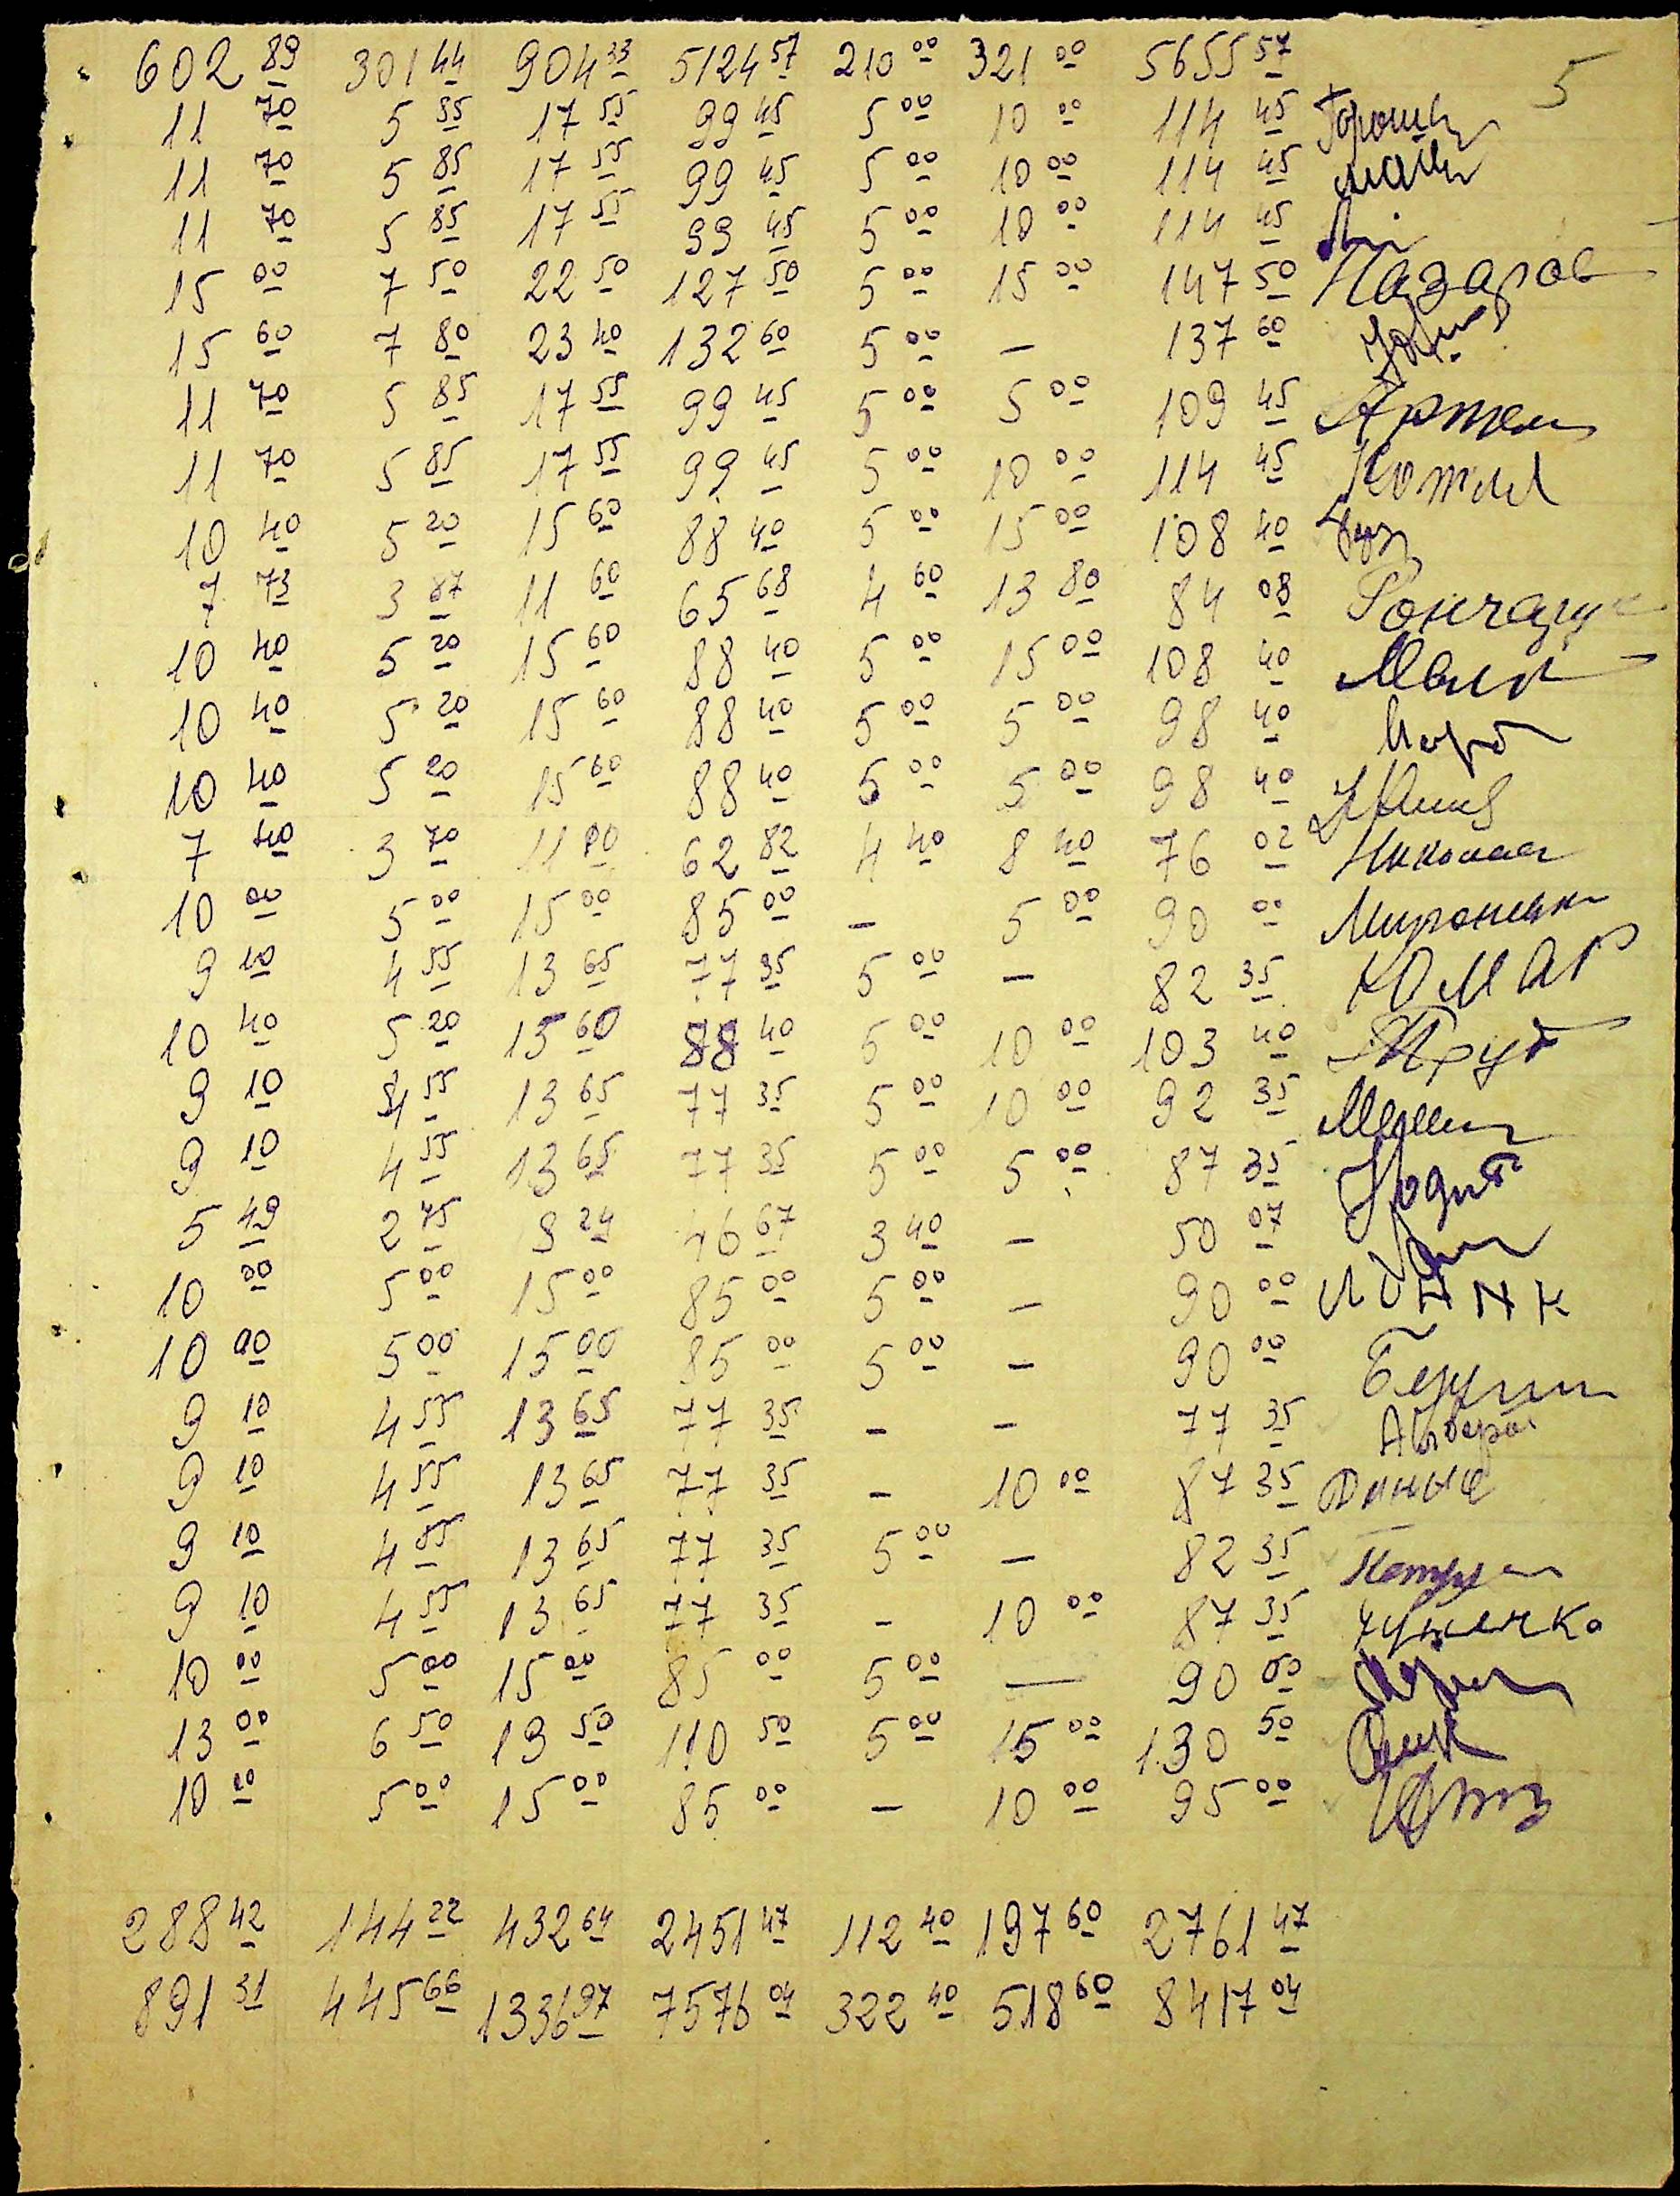 5
602 89 301 44 904 33 5124 57 210 00 321 00 5655 57
11 70 5 85 17 55 99 45 5 00 10 00 114 45
11 70 5 85 17 55 99 45 5 00 10 00 114 45
11 70 5 85 17 55 99 45 5 00 10 00 114 45
15 00 7 50 22 50 127 50 5 00 15 00 147 50 Назаров
15 60 7 80 23 40 132 60 5 00 — 137 60
11 70 5 85 17 55 99 45 5 00 5 00 109 45 Артем
11 70 5 85 17 55 99 45 5 00 10 00 114 45
10 40 5 20 15 60 88 40 5 00 15 00 108 40
7 73 3 87 11 60 65 68 4 60 13 80 84 08
10 40 5 20 15 60 88 40 5 00 15 00 108 40
10 40 5 20 15 60 88 40 5 00 5 00 98 40
10 40 5 20 15 60 88 40 5 00 5 00 98 40
7 40 3 70 11 62 82 4 40 8 40 76 02 Николаи
10 00 5 00 15 00 85 00 — 5 00 90 00
9 10 4 55 13 65 77 35 5 00 — 82 35
10 40 5 20 15 60 88 40 5 00 10 00 103 40
9 10 4 55 13 65 77 35 5 00 10 00 92 35
9 10 4 55 13 65 77 35 5 00 5 00 87 35
5 49 2 75 8 24 46 67 3 40 — 50 07
10 00 5 00 15 00 85 00 5 00 — 90 00
10 00 5 00 15 00 85 00 5 00 — 90 00
9 10 4 55 13 65 77 35 — — 77 35
9 10 4 55 13 65 77 35 — 10 00 87 35
9 10 4 55 13 65 77 35 5 00 — 82 35
9 10 4 55 13 65 77 35 — 10 00 87 35
10 00 5 00 15 00 85 00 5 00 — 90 00
13 00 6 50 19 50 110 50 5 00 15 00 130 50
10 00 5 00 15 00 85 00 — 10 00 95 00
288 42 144 22 432 64 2451 47 112 40 197 60 2761 47
891 31 445 66 1336 97 7576 04 322 40 518 60 8417 04